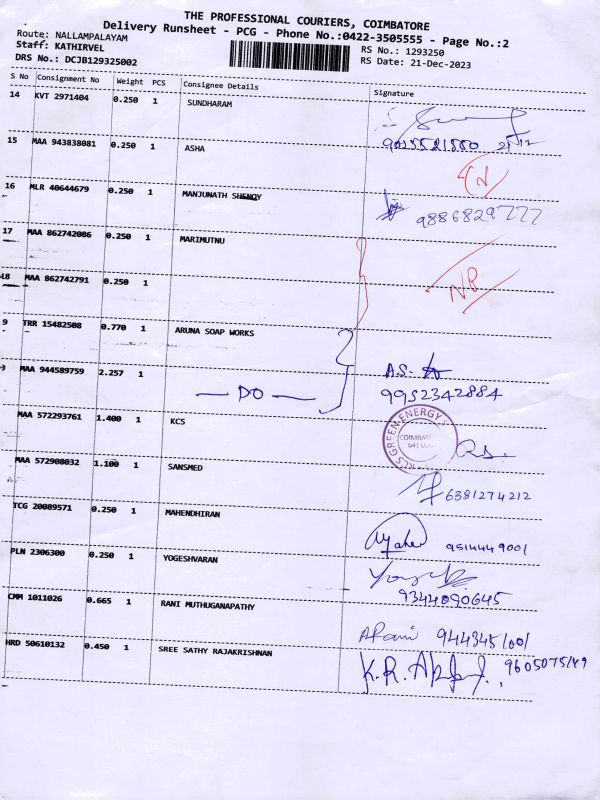 THE PROFESSIONAL COURIERS, COIMBATORE
Delivery Runsheet - PCG - Phone No.:0422-3505555 - Page No.:2
Route: NALLAMPALAYAM
Staff: KATHIRVEL
DRS No.: DCJB129325002
RS No.: 1293250
RS Date: 21-Dec-2023
S No Consignment No Weight PCS Consignee Details Signature
14 KVT 2971404 0.250 1 SUNDHARAM
15 MAA 943838081 0.250 1 ASHA
16 MLR 40644679 0.250 1 MANJUNATH SHENOY 9886829777
17 MAA 862742086 0.250 1 MARIMUTNU
18 MAA 862742791 0.250 1 NP
9 TRR 15482508 0.770 1 ARUNA SOAP WORKS
MAA 944589759 2.257 1 — DO — A.S. 9952342884
MAA 572293761 1.400 1 KCS
KCS GREEN ENERGY COIMBATORE
MAA 572908032 1.100 1 SANSMED 6381274212
TCG 20089571 0.250 1 MAHENDHIRAN 9514449001
PLN 2306300 0.250 1 YOGESHVARAN 9344090645
CMM 1011026 0.665 1 RANI MUTHUGANAPATHY 9443451001
HRD 50610132 0.450 1 SREE SATHY RAJAKRISHNAN K.R.